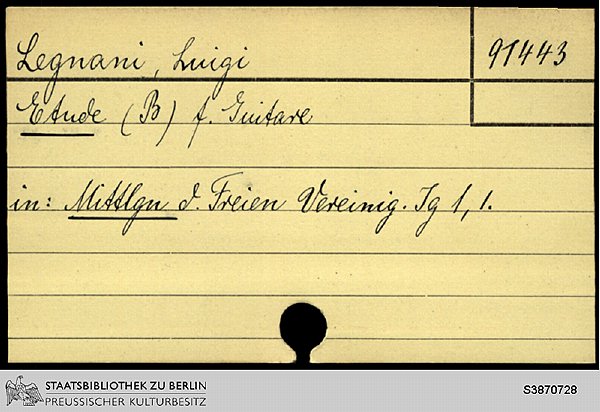 Legnani, Luigi
91443
Etude (B) f. Guitare
in: Mittlgn d. Freien Vereinig. Jg 1, 1.
STAATSBIBLIOTHEK ZU BERLIN
PREUSSISCHER KULTURBESITZ
S3870728